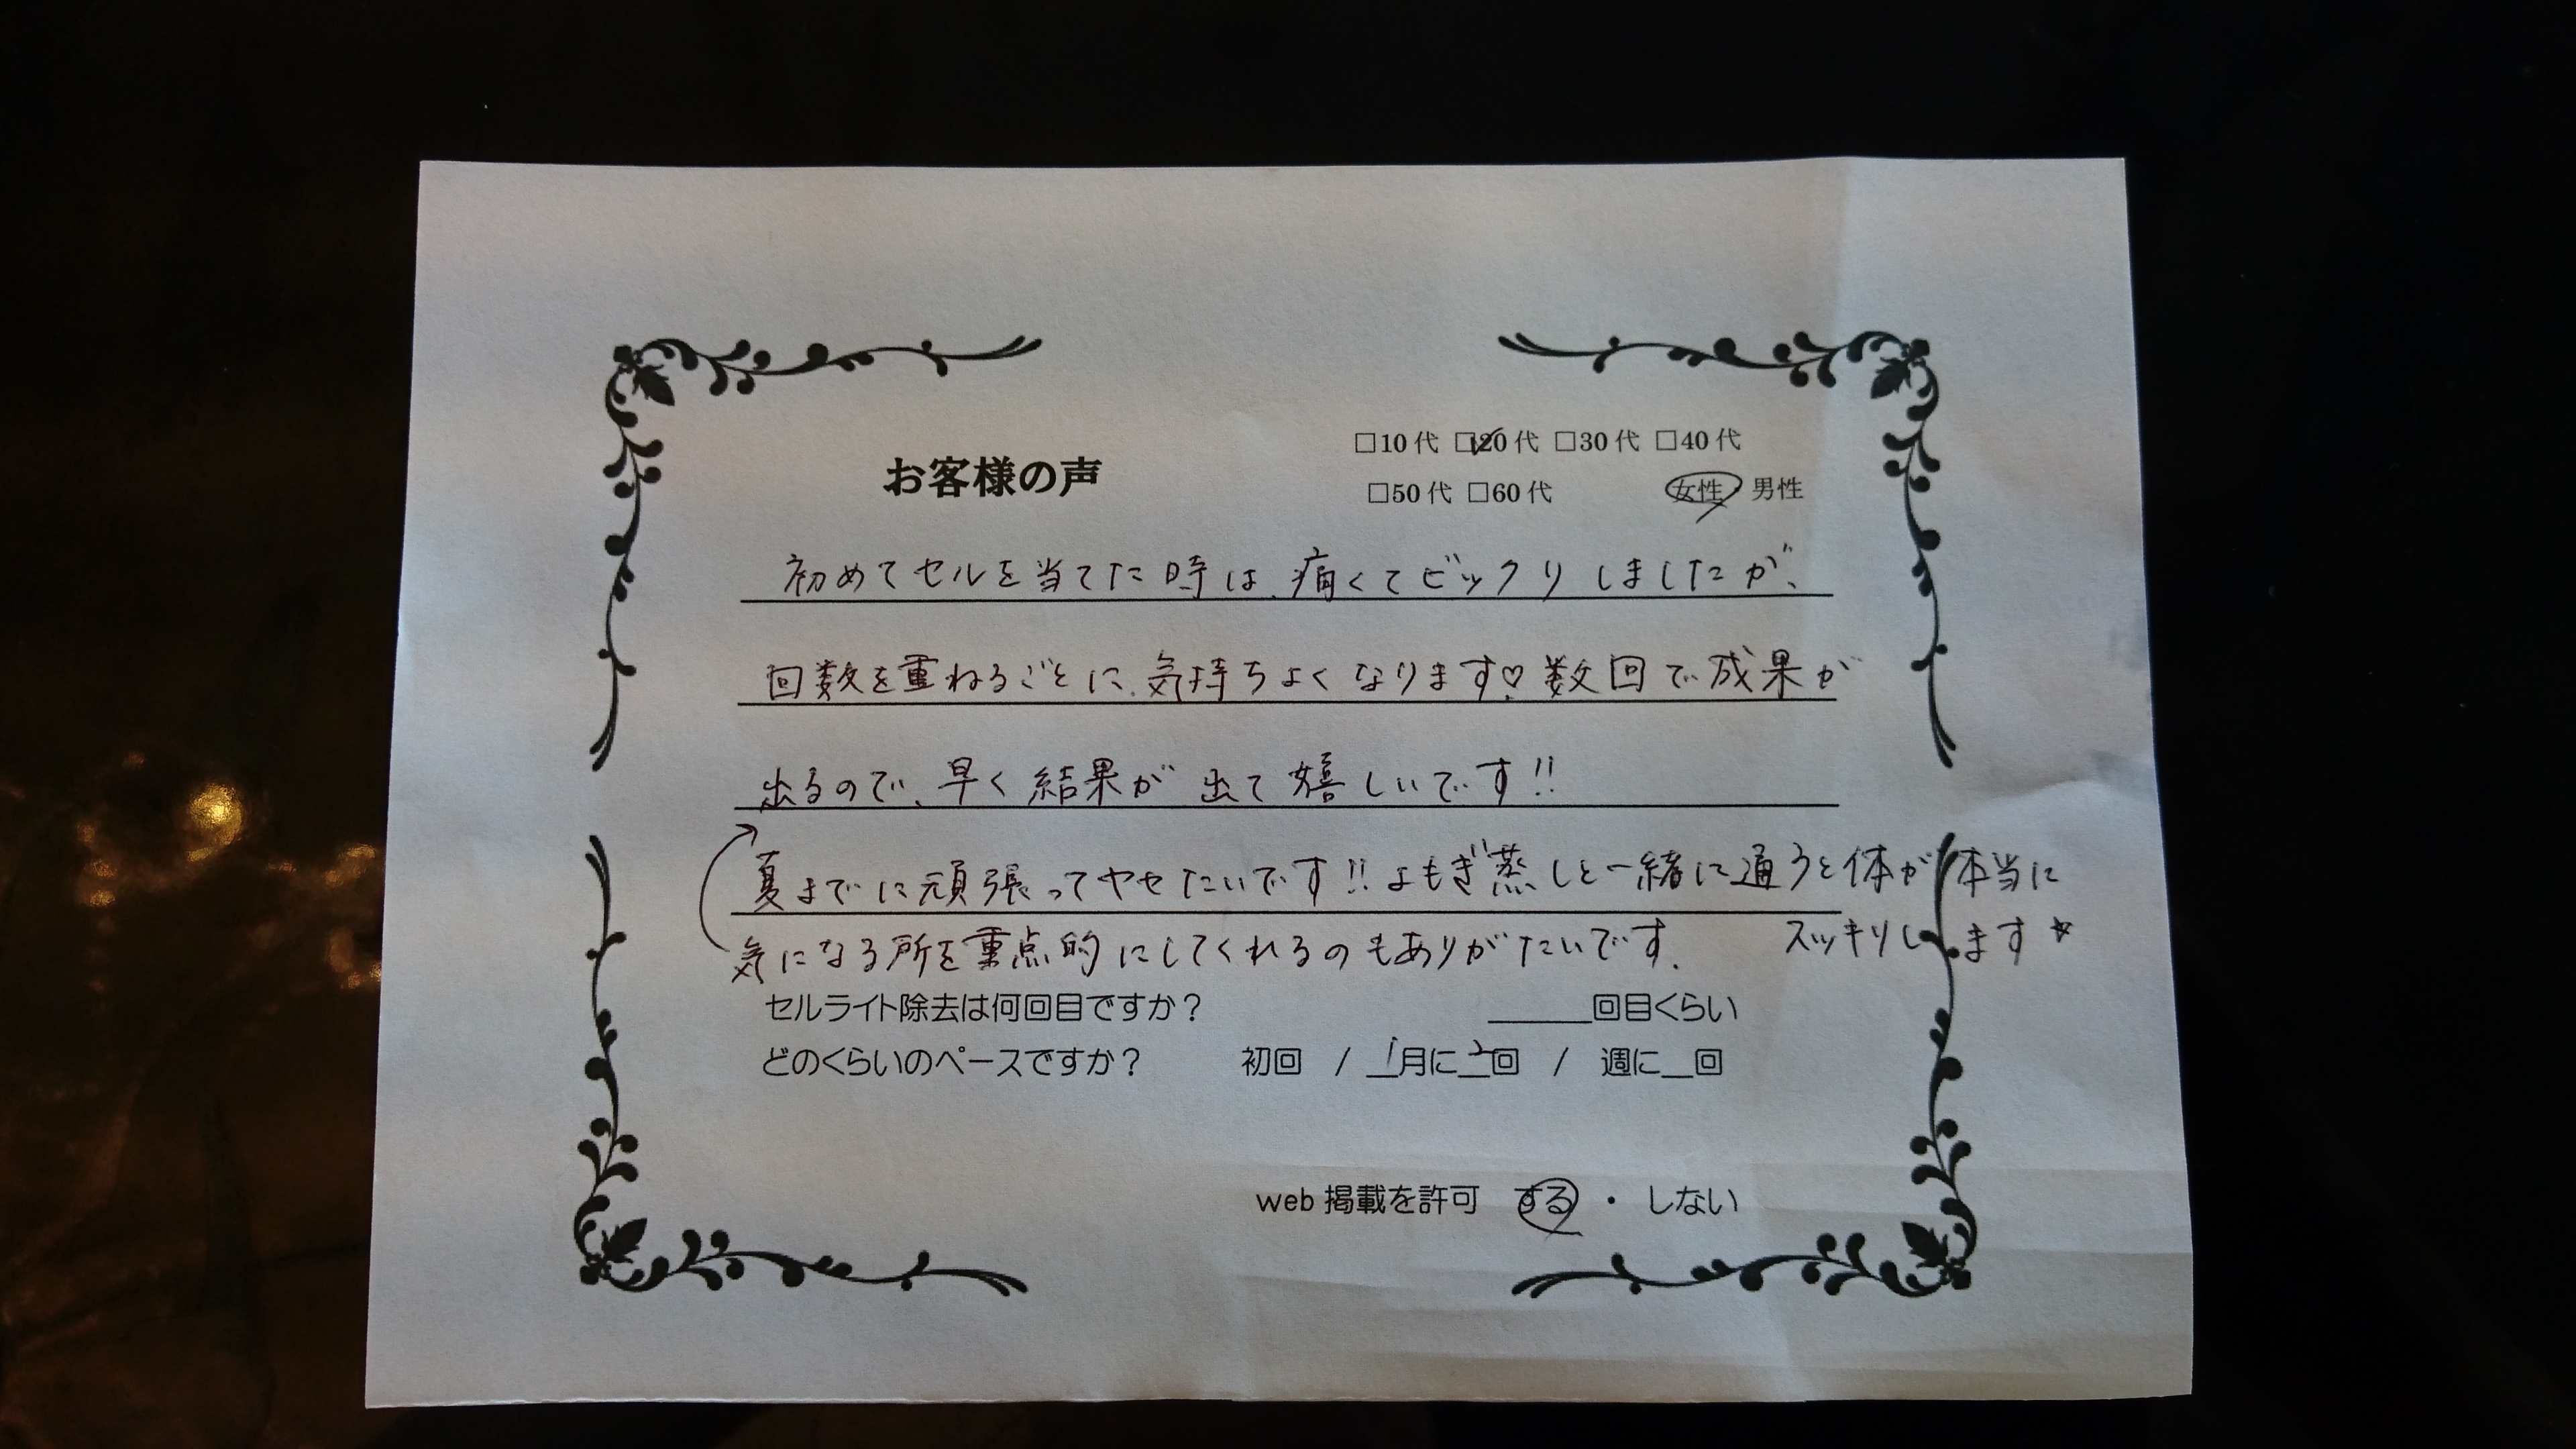 お客様の声
□10代 ☑20代 □30代 □40代
□50代 □60代 女性・男性
初めてセルを当てた時は、痛くてビックリしましたが、
回数を重ねるごとに、気持ちよくなります♡数回で成果が
出るので、早く結果が出て嬉しいです!!
夏までに頑張ってヤセたいです!!よもぎ蒸しと一緒に通うと体が本当に
スッキリします☆
気になる所を重点的にしてくれるのもありがたいです.
セルライト除去は何回目ですか? ＿＿＿回目くらい
どのくらいのペースですか? 初回 / 1月に2回 / 週に＿回
web掲載を許可 する ・ しない